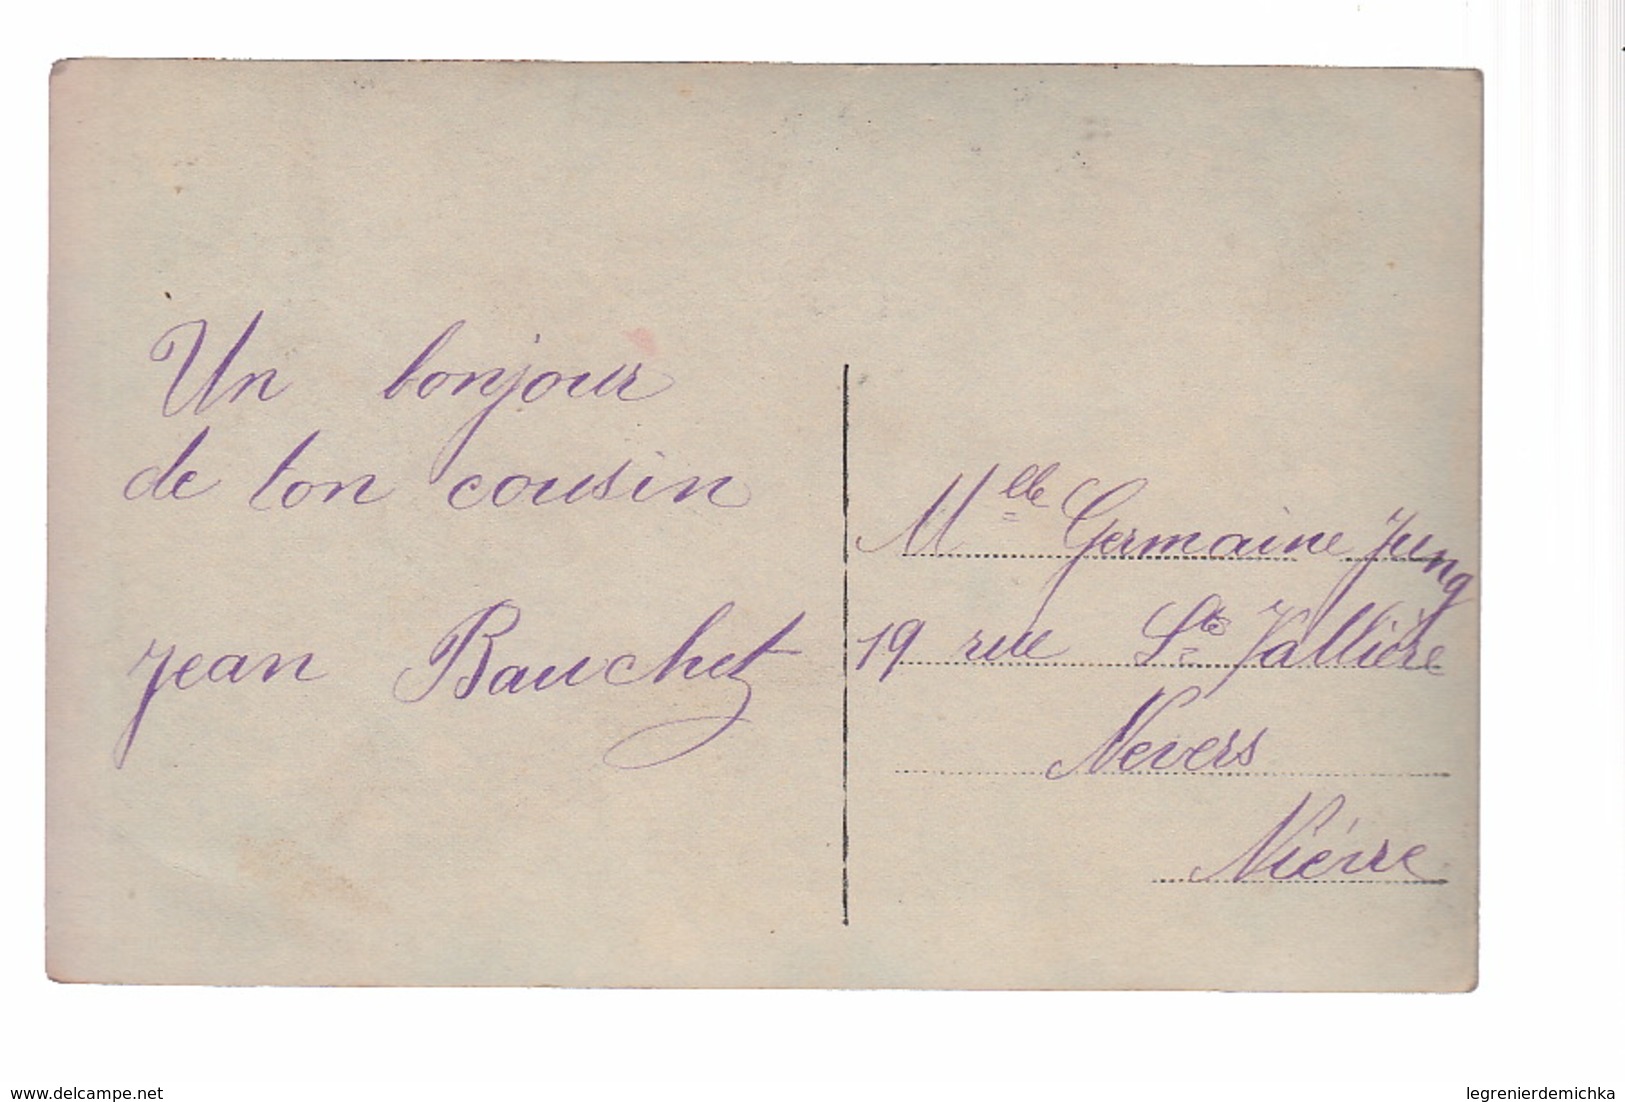 Un bonjour
de ton cousin
Jean Bauchet
Mlle Germaine Jung
19 rue Ste Vallière
Nevers
Nièvre
www.delcampe.net
legrenierdemichka